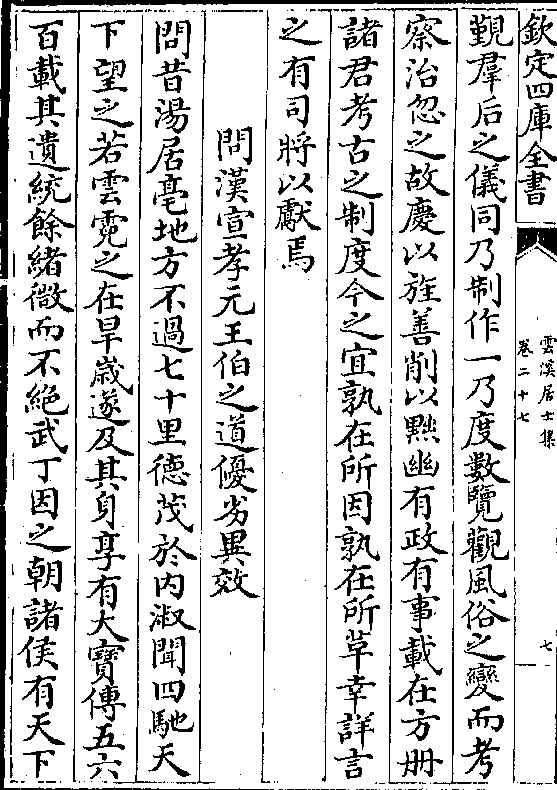 欽定四庫全書
雲溪居士集
卷二十七
七
覲羣后之儀同乃制作一乃度數覽觀風俗之變而考
察治忽之故慶以旌善削以黜幽有政有事載在方册
諸君考古之制度今之宜孰在所因孰在所革幸詳言
之有司將以獻焉
問漢宣孝元王伯之道優劣異效
問昔湯居亳地方不過七十里德茂於内淑聞四馳天
下望之若雲霓之在旱歲遂及其身享有大寶傳五六
百載其遺統餘緒微而不絶武丁因之朝諸侯有天下